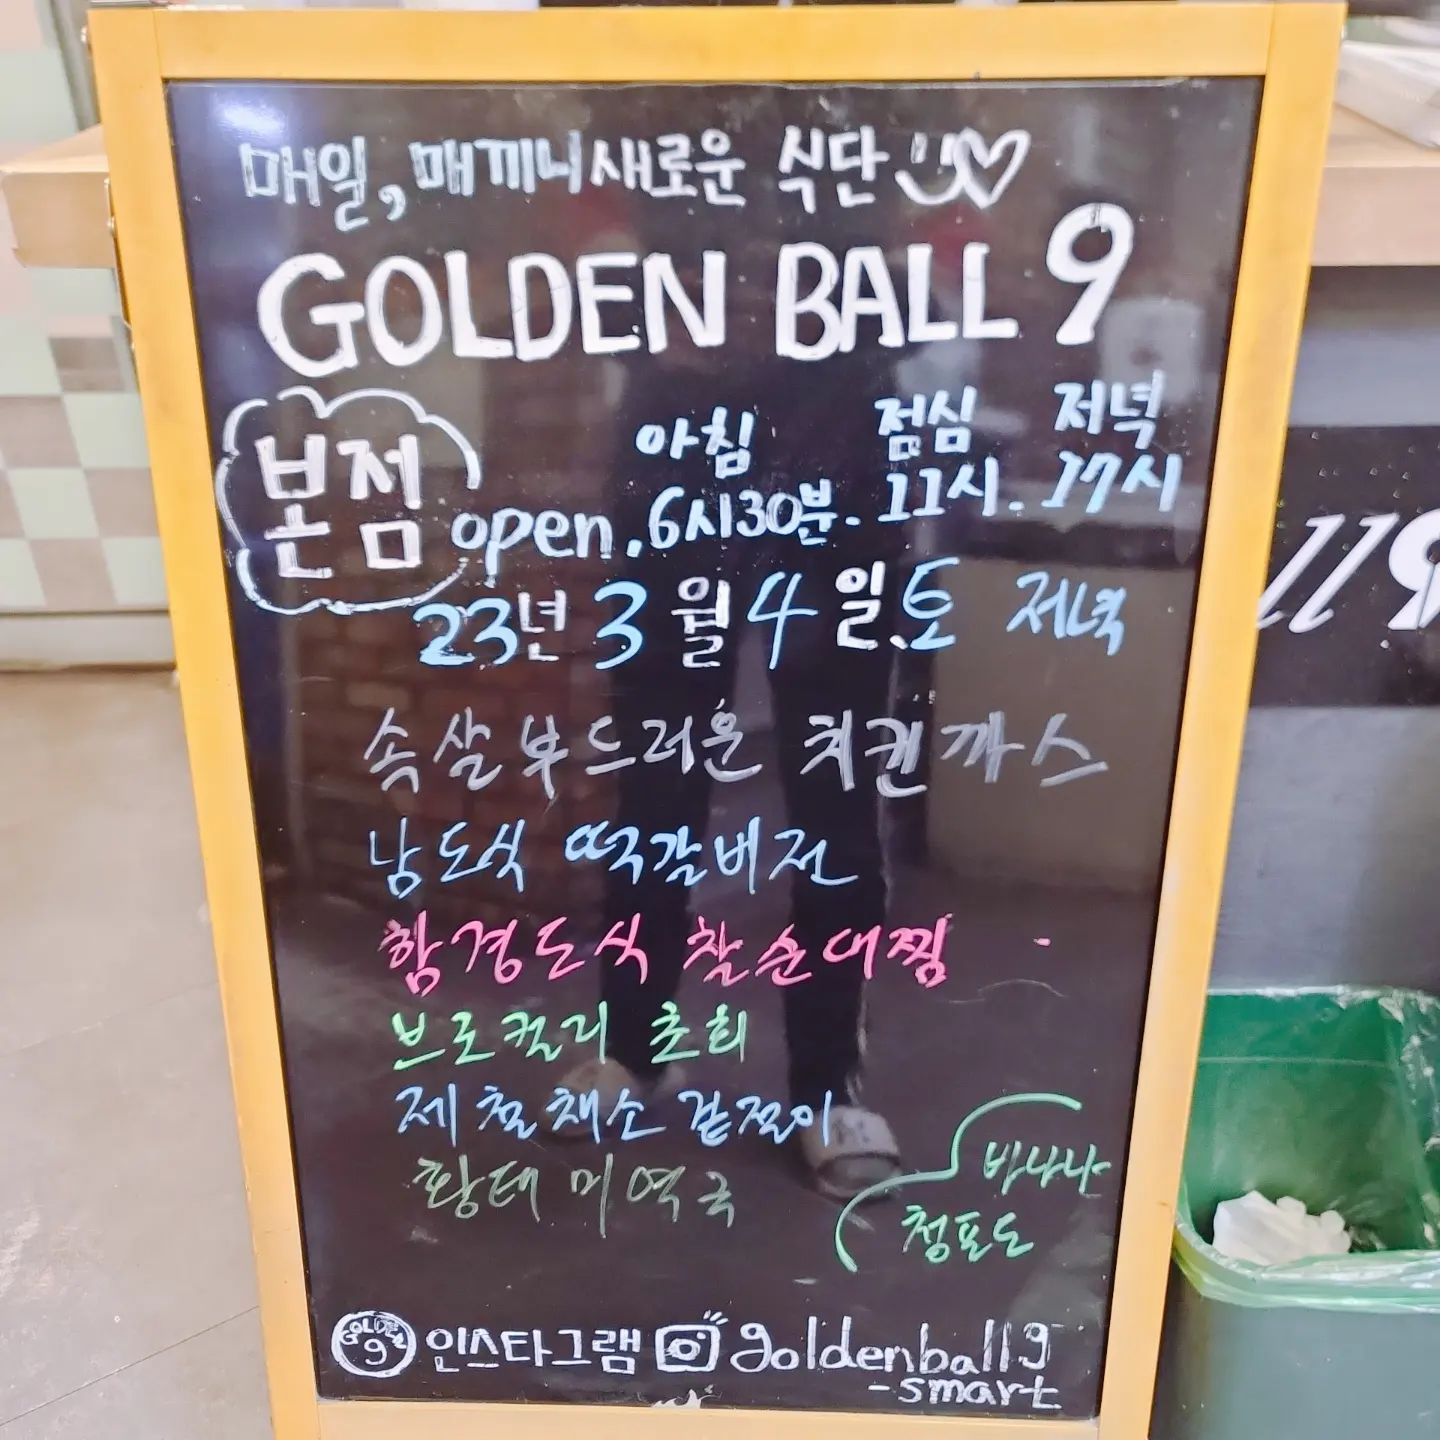 매일, 매끼니 새로운 식단
GOLDEN BALL 9
본점
아침 점심 저녁
open. 6시30분. 11시. 17시
23년 3월 4일.토 저녁
속살부드러운 치킨까스
남도식 떡갈비전
함경도식 찰순대찜
브로컬리 초회
제철채소 겉절이
황태 미역국
바나나
청포도
GOLDEN 9 인스타그램 goldenball9
-smart
ll9